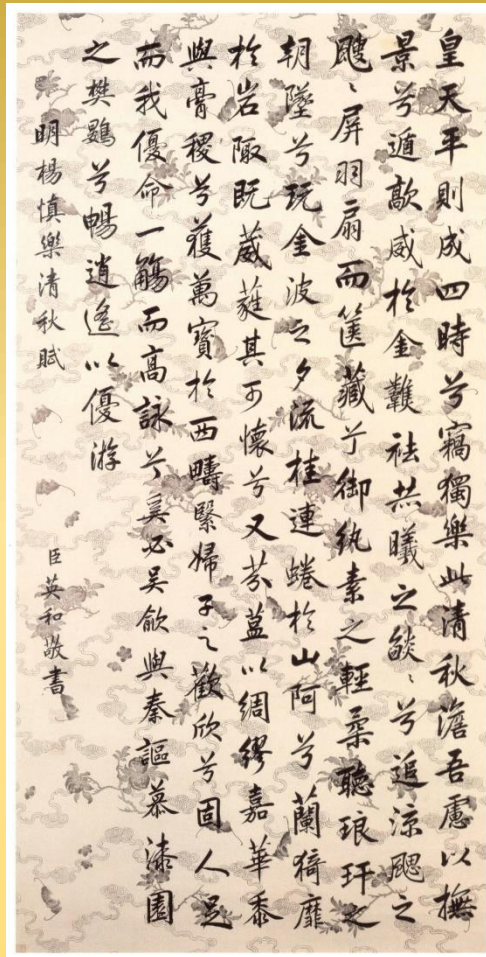 皇天平則成四時兮竊獨樂此清秋澹吾慮以撫
景兮遁歊威於金祛曦之燄〻兮追涼颸之
颼〻屏羽扇而篋藏兮御紈素之輕柔聽琅玕之
朝墜兮玩金波之夕流桂連蜷於山阿兮蘭猗靡
於岩陬既葳蕤其可懷兮又芬葐以綢繆嘉華黍
與膏稷兮獲萬寶於西疇繄婦子之歡欣兮固人足
而我優命一觴而高詠兮奚必吳歈與秦謳慕漆園
之樊鷃兮暢逍遙以優游
明楊慎樂清秋賦
臣英和敬書